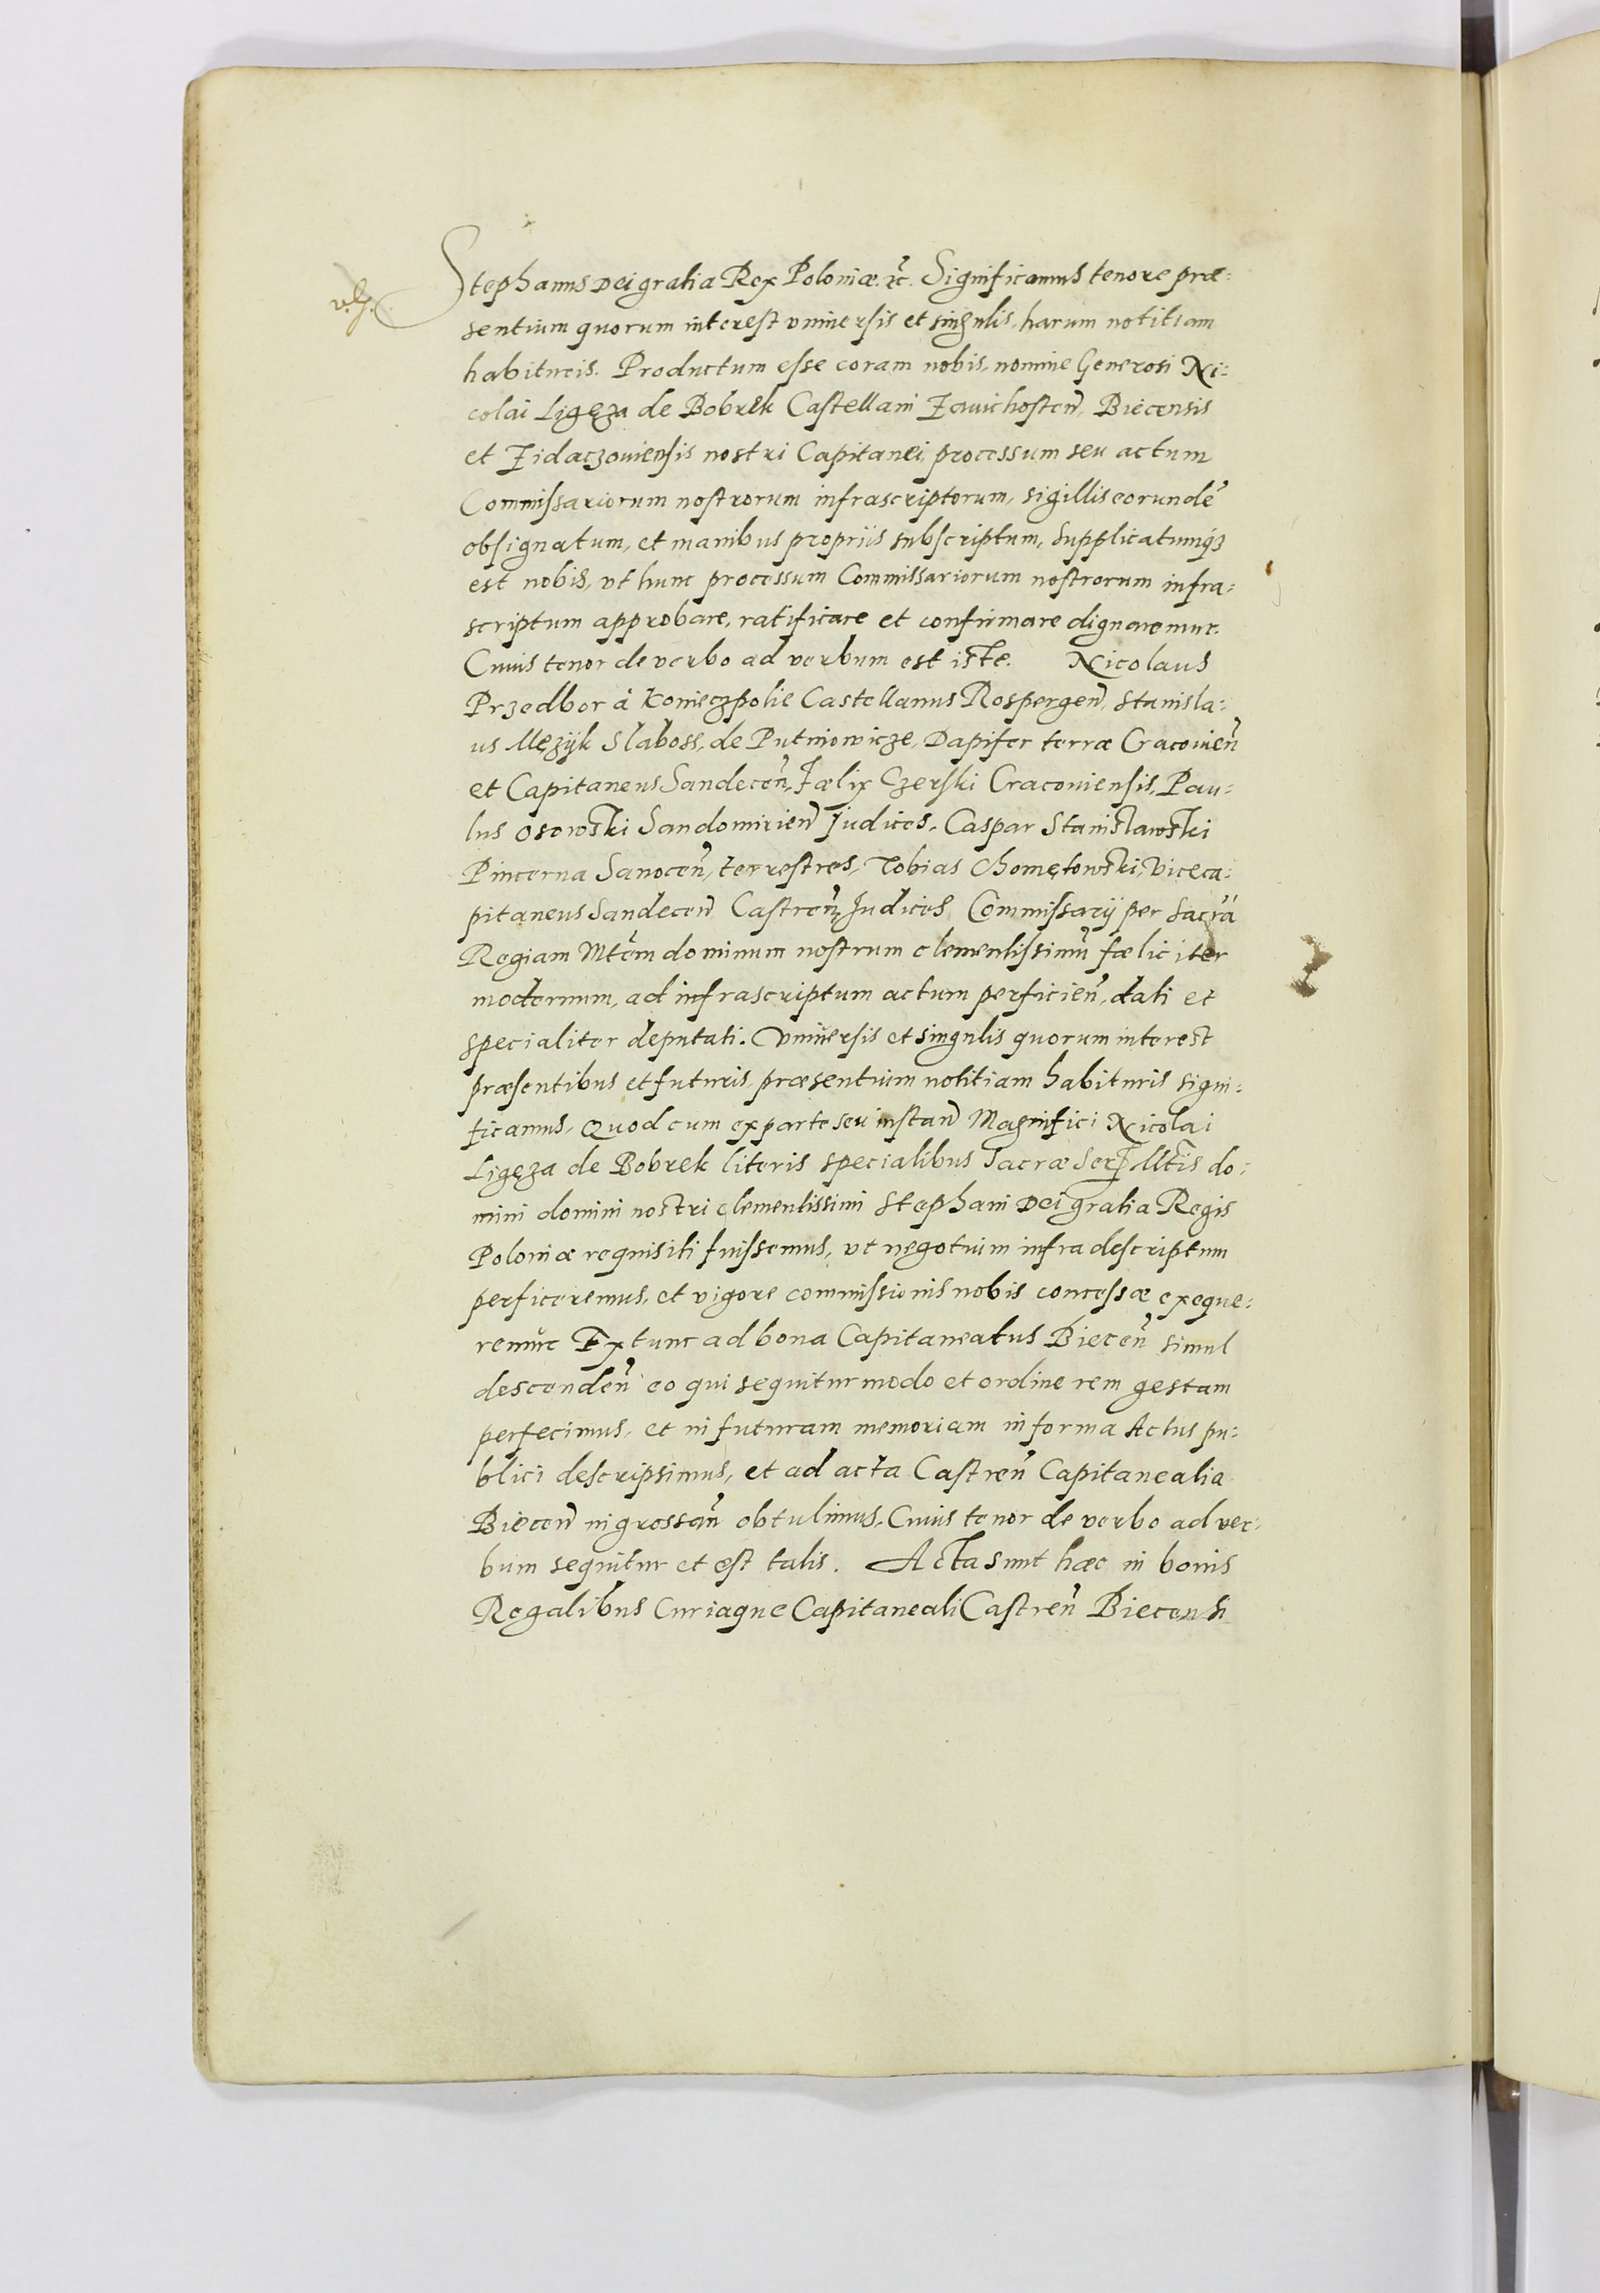 Stephanus Dei gratia Rex Poloniæ. etc. Significamus tenore præ:
sentium quorum interest vniuersis et singulis, harum notitiam
habituris. Productum esse coram nobis, nomine Generosi Ni:
colai Ligęza de Bobrek Castellani Zawichosteñ, Biecensis
et Zidaczouiensis nostri Capitanei, processum seu actum
Commissariorum nostrorum infrascriptorum, sigillis eorundẽ
obsignatum, et manibus propriis subscriptum, Supplicatumq3
est nobis, vt hunc processum Commissariorum nostrorum infra:
scriptum approbare, ratificare et confirmare dignaremur.
Cuius tenor de verbo ad verbum est iste. Nicolaus
Przedbor à Konieczpolie Castellanus Rospergeñ, Stanisla:
us Mężyk Slaboss, de Putniowicze, Dapifer terræ Cracouieñ
et Capitaneus Sandeceñ, Fælix Czerski Cracouiensis, Pau:
lus Osowski Sandomirieñ Judices, Caspar Stanislawski
Pincerna Sanoceñ, terrestres, Tobias Chomętowski, Viceca:
pitaneus Sandeceñ Castreñ Judices, Commissarij per Sacrã
Regiam Mtẽm dominum nostrum clementissimũ fæliciter
modernum, ad infrascriptum actum perficieñ, dati et
specialiter deputati. Vniuersis et singulis quorum interest
præsentibus et futuris, præsentium notitiam habituris signi:
ficamus, Quod cum ex parte seu instañ Magnifici Nicolai
Ligęza de Bobrek literis specialibus Sacræ Ser Mtis do:
mini domini nostri clementissimi Stephani Dei gratia Regis
Poloniæ requisiti fuissemus, vt negotium infra descriptum
perficeremus, et vigore commissionis nobis concessæ exeque:
remur Extunc ad bona Capitaneatus Bieceñ simul
descendeñ eo qui sequitur modo et ordine rem gestam
perfecimus, et in futuram memoriam in forma Actus pu:
blici descripsimus, et ad acta Castreñ Capitanealia
Bieceñ ingrossañ obtulimus, Cuius tenor de verbo ad ver:
bum sequitur et est talis. Acta sunt hæc in bonis
Regalibus Curiaque Capitaneali Castreñ Biecensi